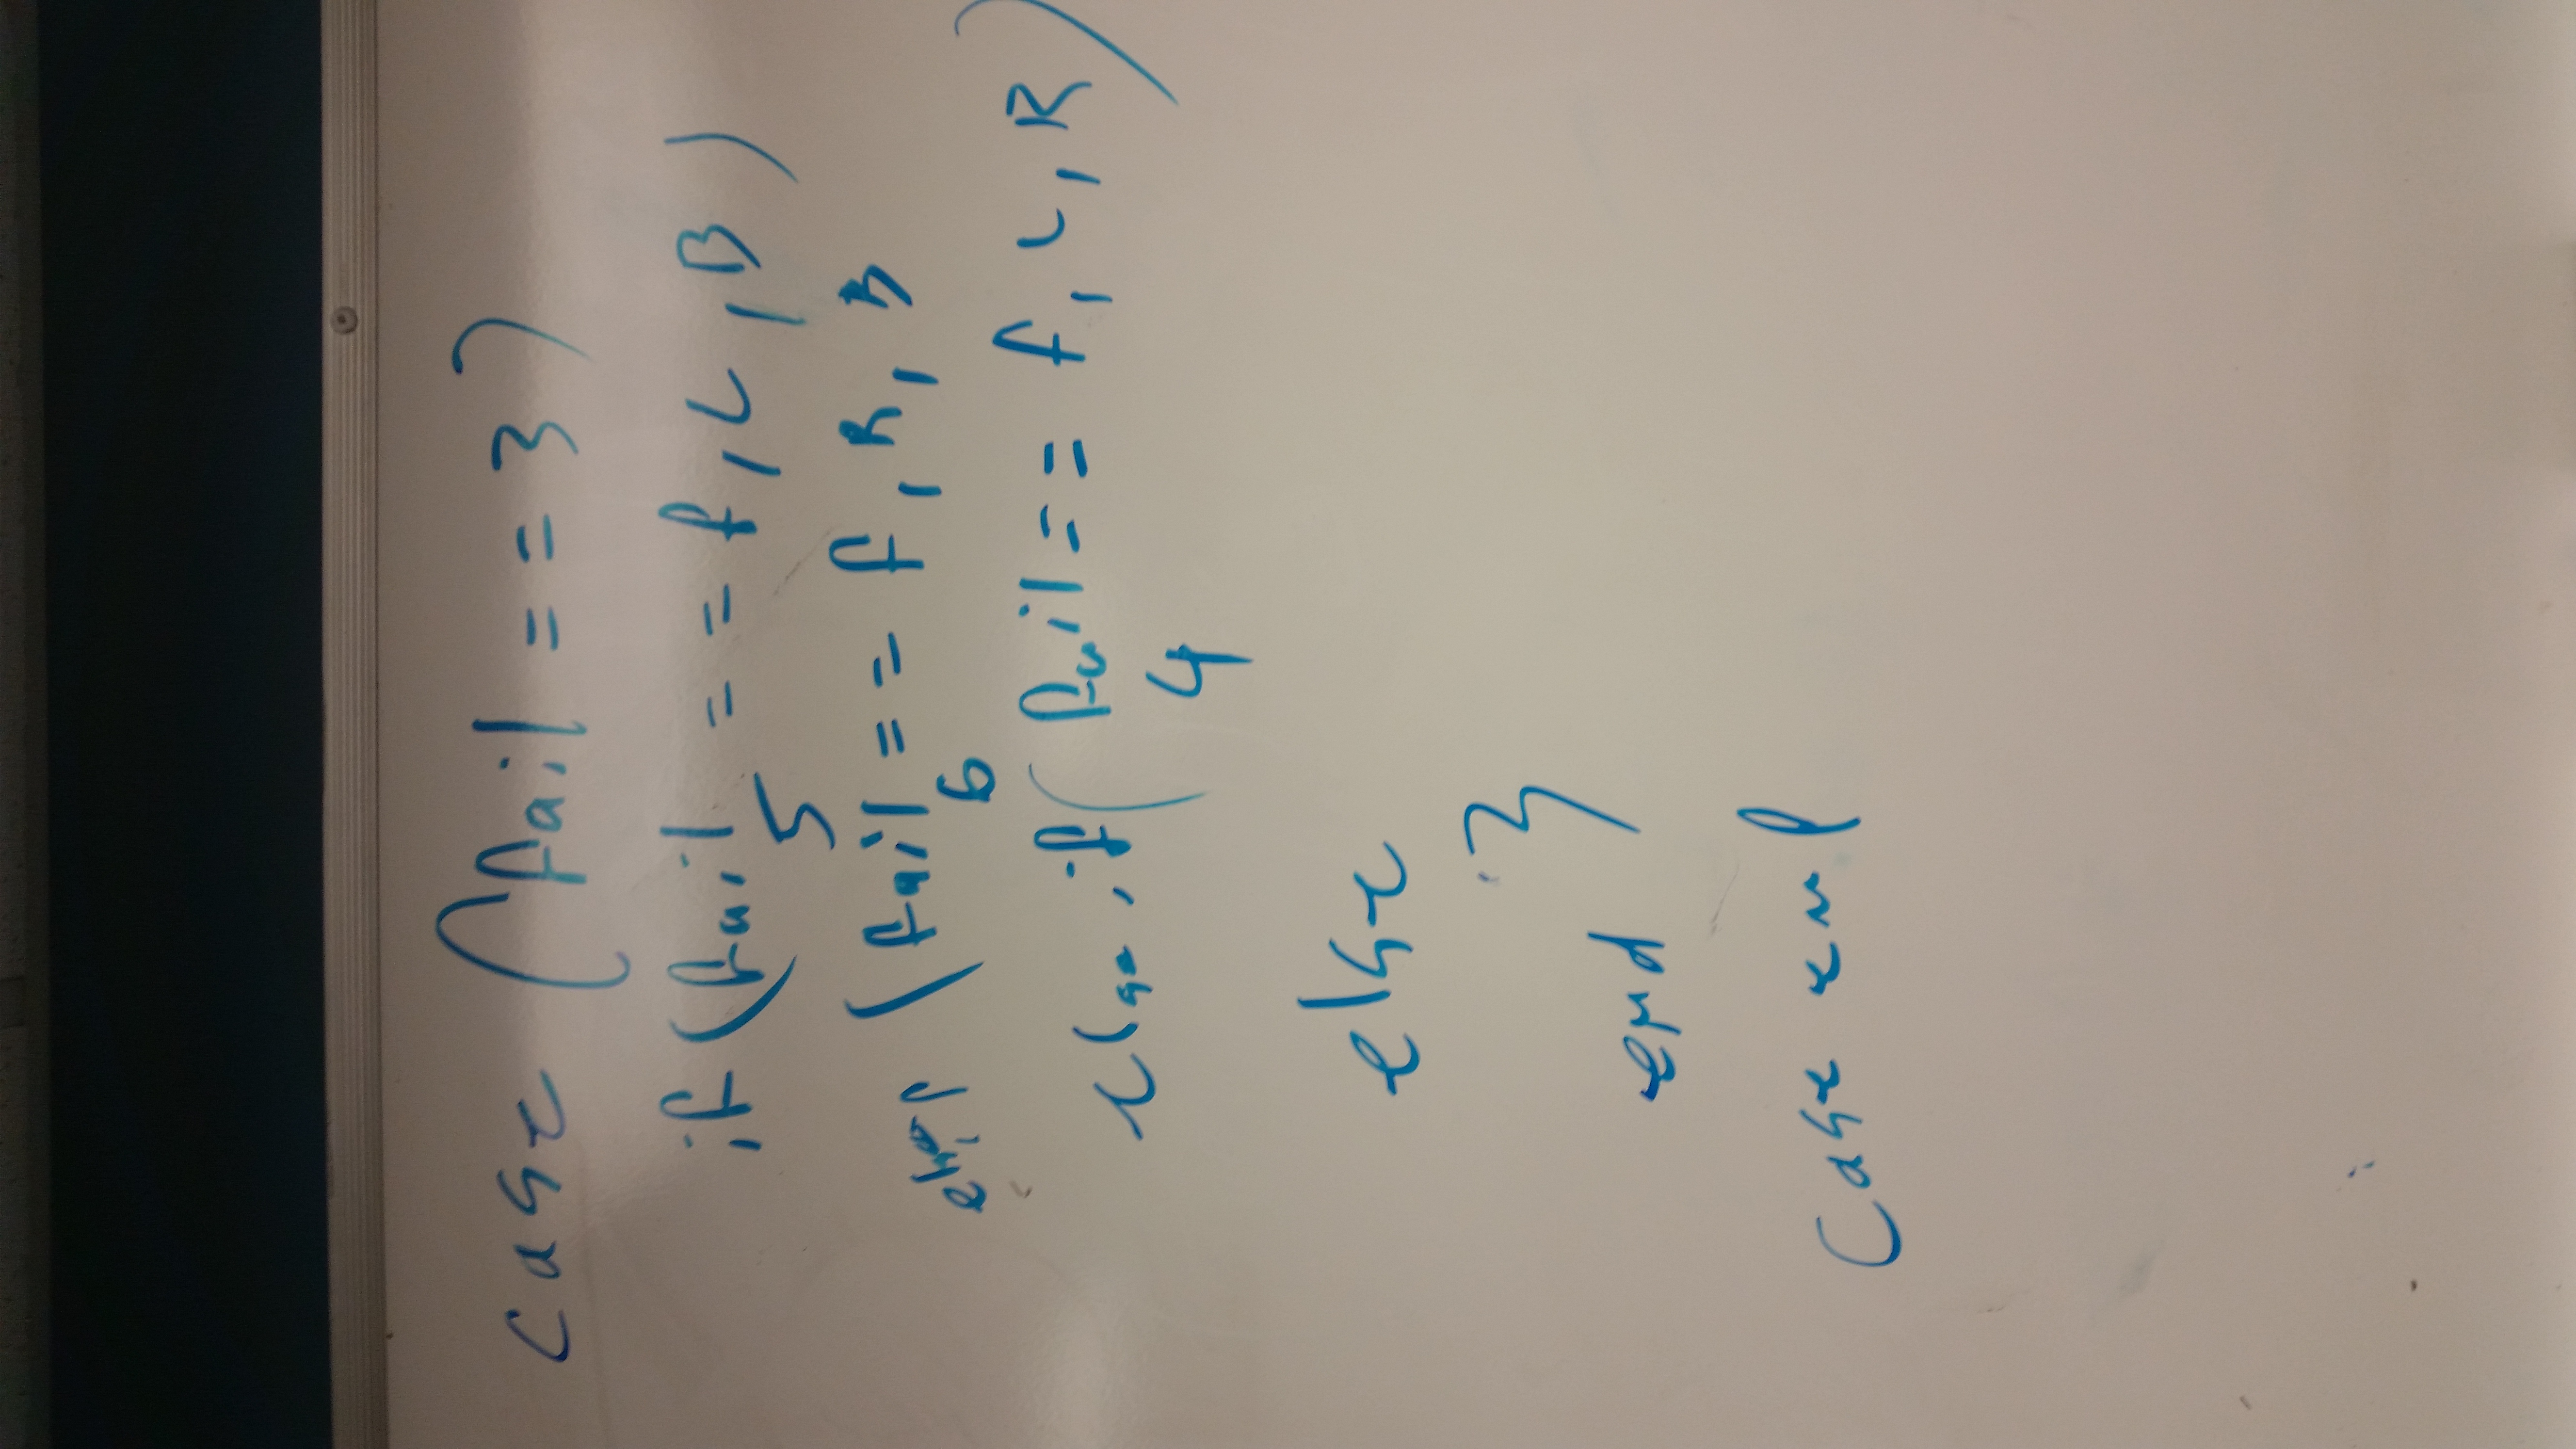 case (fail == 3)
if (fail == f, L, B)
5
(fail == f, R, B
6
else if (fail == f, L, R)
4
else
3
end
Case end